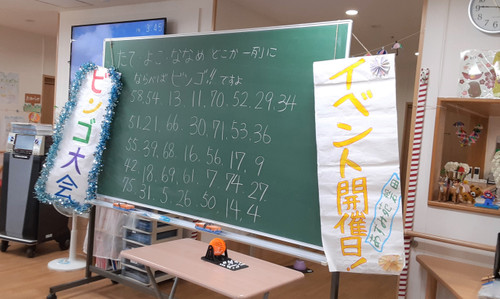 9:45
たて よこ ななめ どこか一列に
ならべば ビンゴ!! ですよ
58.54 13.11.70.52.29.34
51.21.66 30.71.53.36
55.39.68.16.56.17.9
42.18.69.61.7 74.27.
75.31.5.26.50.14.4
ビンゴ大会
イベント開催日!